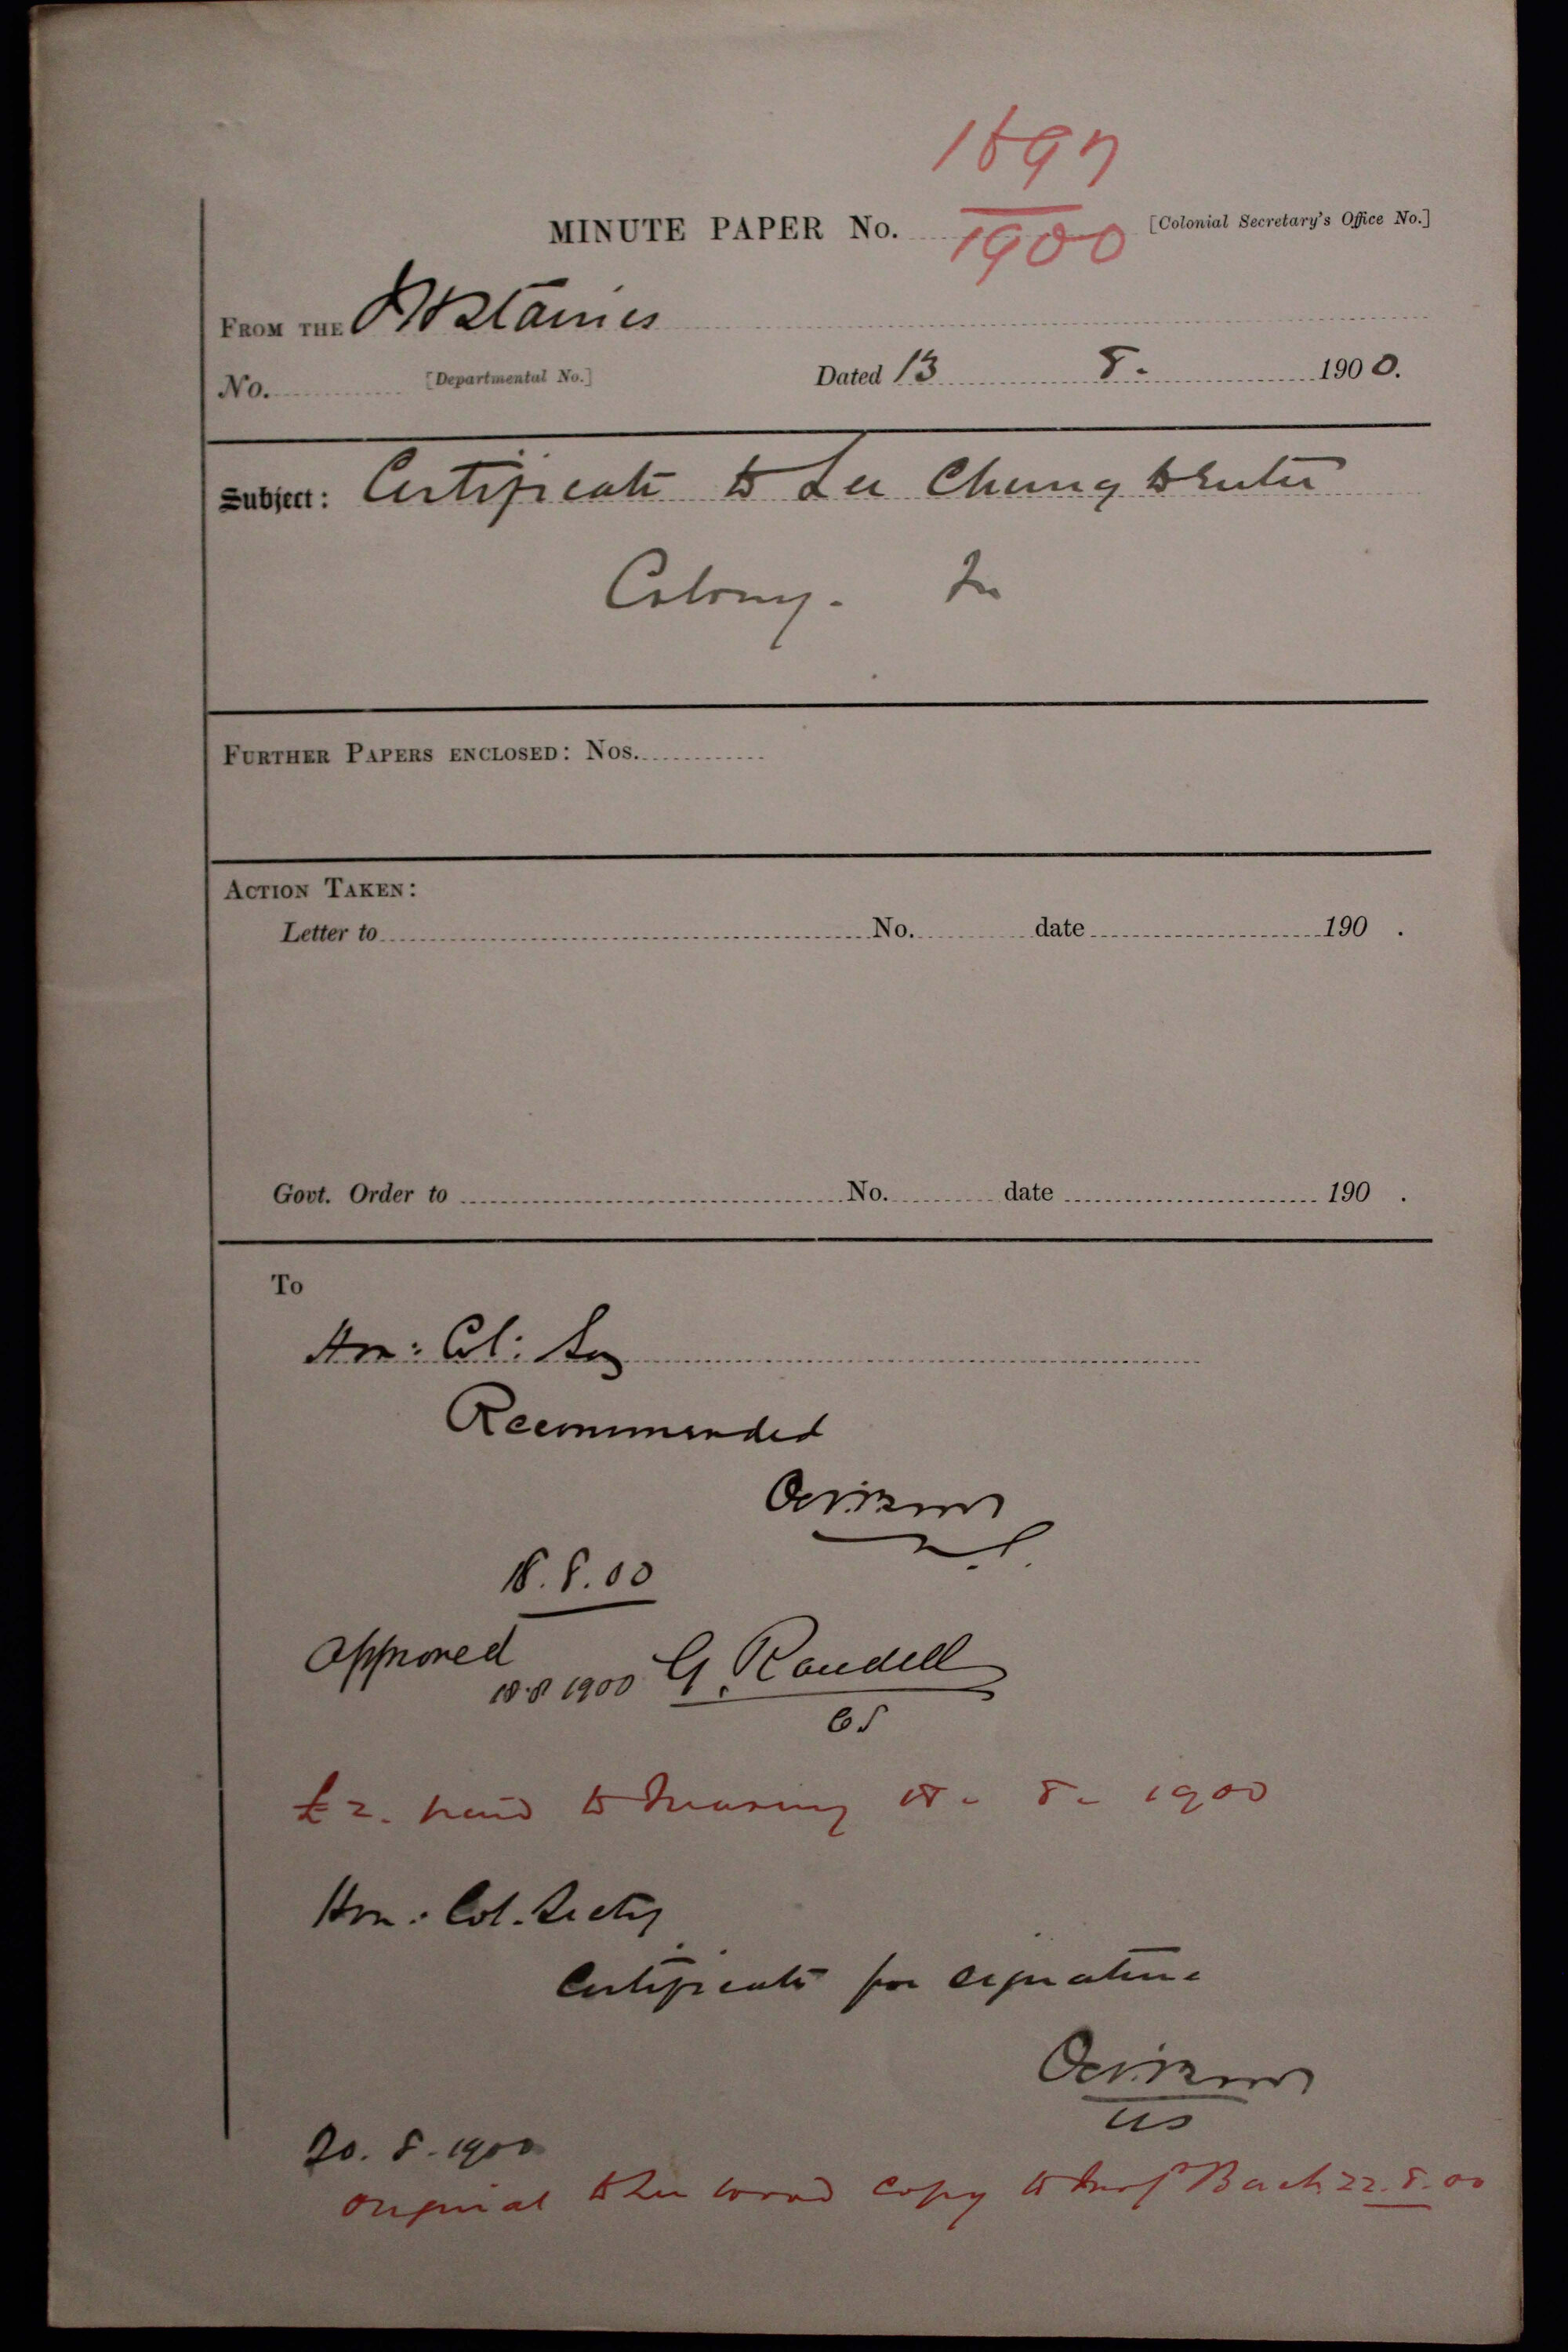 1897
MINUTE PAPER No. 1900 [Colonial Secretary's Office No.]
FROM THE Staines
No. [Departmental No.] Dated 13 8. 1900.
Subject: Certificate to Lee Chung to Enter
Colony.
FURTHER PAPERS ENCLOSED: Nos.
ACTION TAKEN:
Letter to No. date 190 .
Govt. Order to No. date 190 .
To
Hon: Col: Secy
Recommended
18.8.00
Approved
18.8.1900 G. Randell
CS
£2. paid to Treasury 18. 8. 1900
Hon: Col. Secty
Certificate for signature
US
20. 8. 1900
Original to copy to 22.8.00